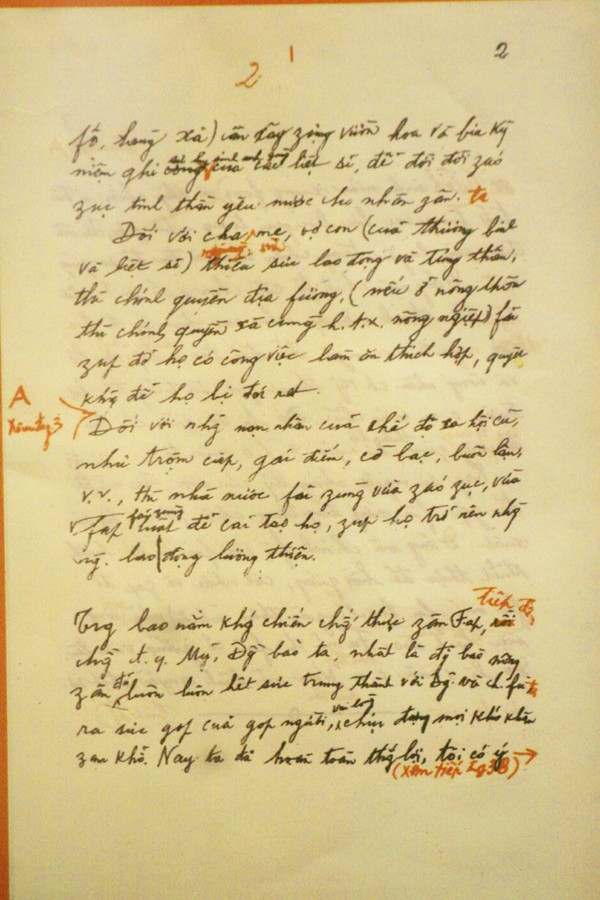 2 1 2
fố, hãng xã) cần xây zựng vườn hoa và bia kỷ
niệm ghi công của các liệt sĩ, để đời đời záo
zục tinh thần yêu nước cho nhân zân. ta
Đối với cha mẹ, vợ con (của thương binh
và liệt sĩ) thiếu sức lao động và túng thiếu,
thì chính quyền địa fương, (nếu ở nông thôn
thì chính quyền xã cùng h.t.x. nông ngiệp) fải
zúp đỡ họ có công việc làm ăn thích hợp, quyết
khg để họ bị đói rét.
A
Đối với nhg nạn nhân của chế độ xã hội cũ,
như trộm cắp, gái điếm, cờ bạc, buôn lậu,
v.v., thì nhà nước fải zùng vừa záo zục, vừa
fải zùng
fáp luật để cải tạo họ, zúp họ trở nên nhg
ng. lao động lương thiện.
Trg bao năm khg chiến chg thực zân Fáp, tiếp đó,
chg đ.q. Mỹ, Đg bào ta, nhất là đg bào nông
zân đã luôn luôn hết sức trung thành với Đg và ch. fủ ta
ra sức góp của góp người, vui lòng chịu đựng mọi khó khăn
zan khổ. Nay ta đã hoàn toàn thg lợi, tôi có ý →
(xem tiếp tg 3B)